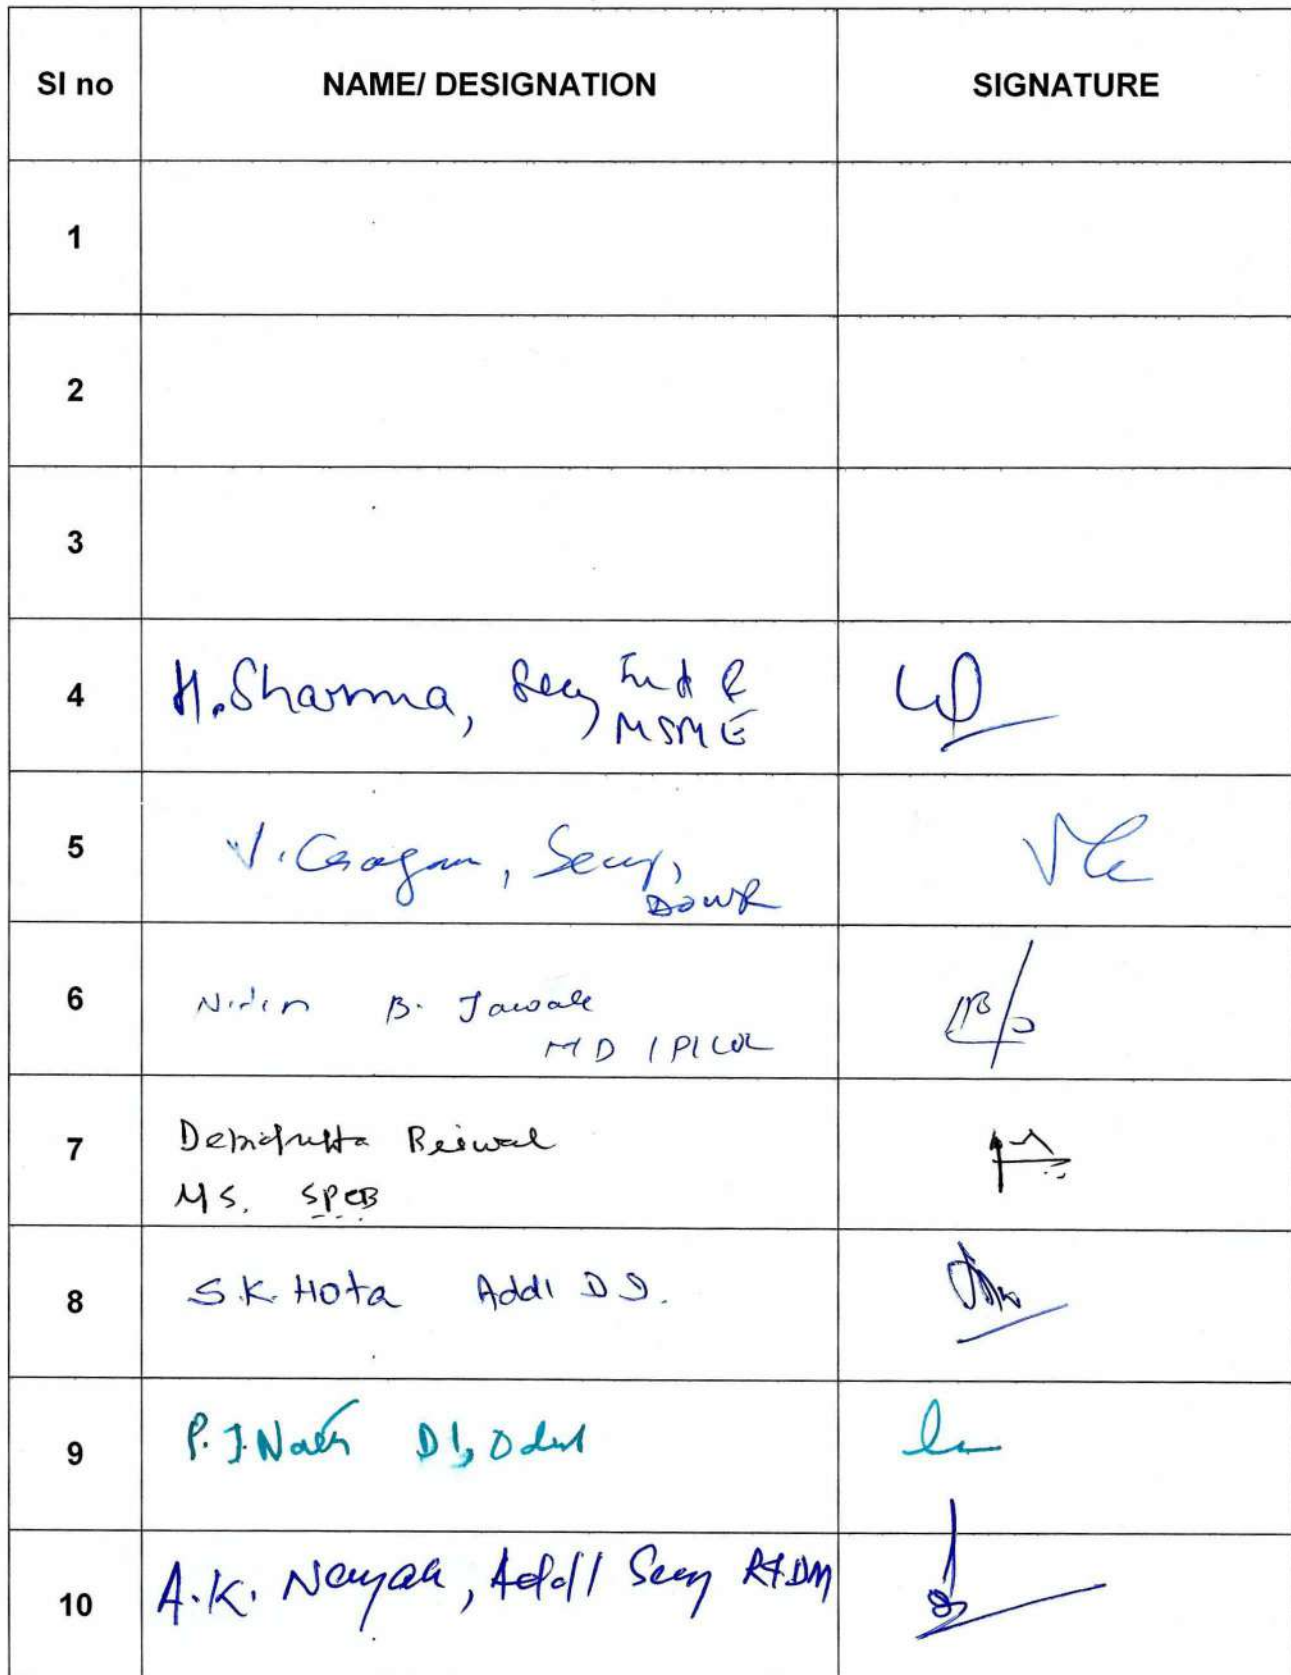 Sl no NAME/ DESIGNATION SIGNATURE
1
2
3
4 H. Sharma, Secy Ind &
MSME
5 V. Secy,
DOWR
6 Nitin B. Jawale
MD IPICOL
7
MS. SPCB
8 S.K. Hota Addl D
9 P. J. DI,
10 A.K. Nayak, Addl Secy R&DM